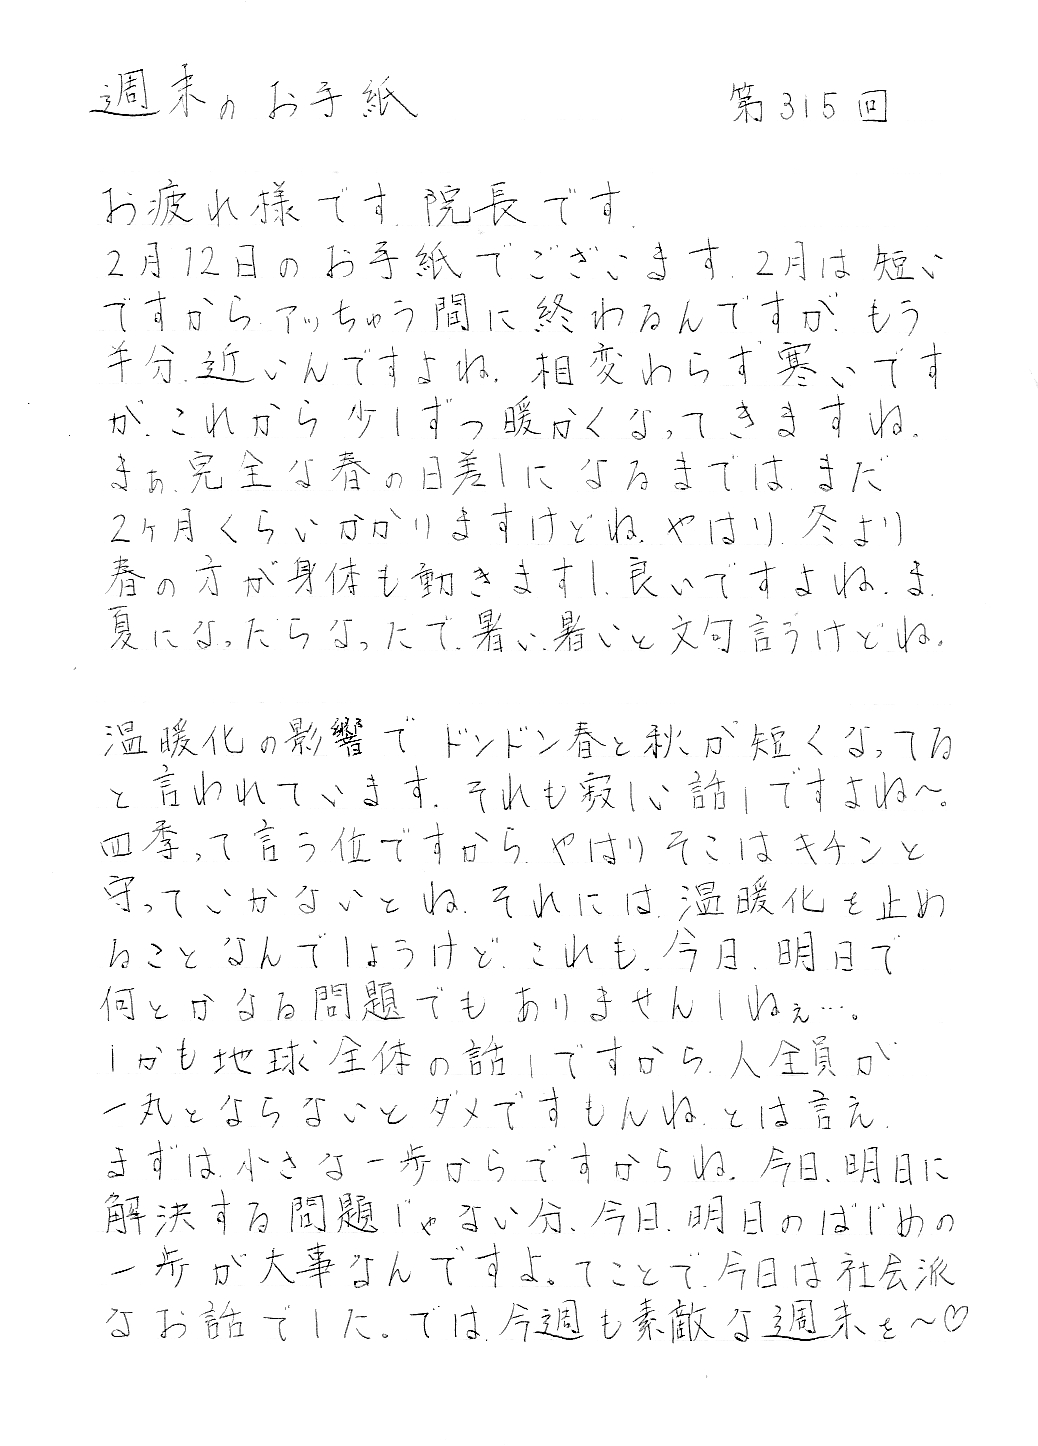 週末のお手紙 第315回
お疲れ様です、院長です、
2月12日のお手紙でございます、2月は短い
ですから、アッちゅう間に終わるんですが、もう
半分、近いんですよね、相変わらず寒いです
が、これから少しずつ暖かくなってきますね、
まぁ、完全な春の日差しになるまでは、まだ
2ヶ月くらいかかりますけどね、やはり、冬より
春の方が身体も動きますし、良いですよね、ま、
夏になったらなったで、暑い、暑いと文句言うけどね。
温暖化の影響でドンドン春と秋が短くなってる
と言われています、それも寂しい話しですよね〜。
四季って言う位ですから、やはりそこはキチンと
守っていかないとね、それには、温暖化を止め
ることなんでしょうけど、これも、今日、明日で
何とかなる問題でもありませんしねぇ…。
しかも地球全体の話しですから、人全員が
一丸とならないとダメですもんね、とは言え、
まずは、小さな一歩からですからね、今日、明日に
解決する問題じゃない分、今日、明日のはじめの
一歩が大事なんですよ。てことで、今日は社会派
なお話でした。では、今週も素敵な週末を〜♡